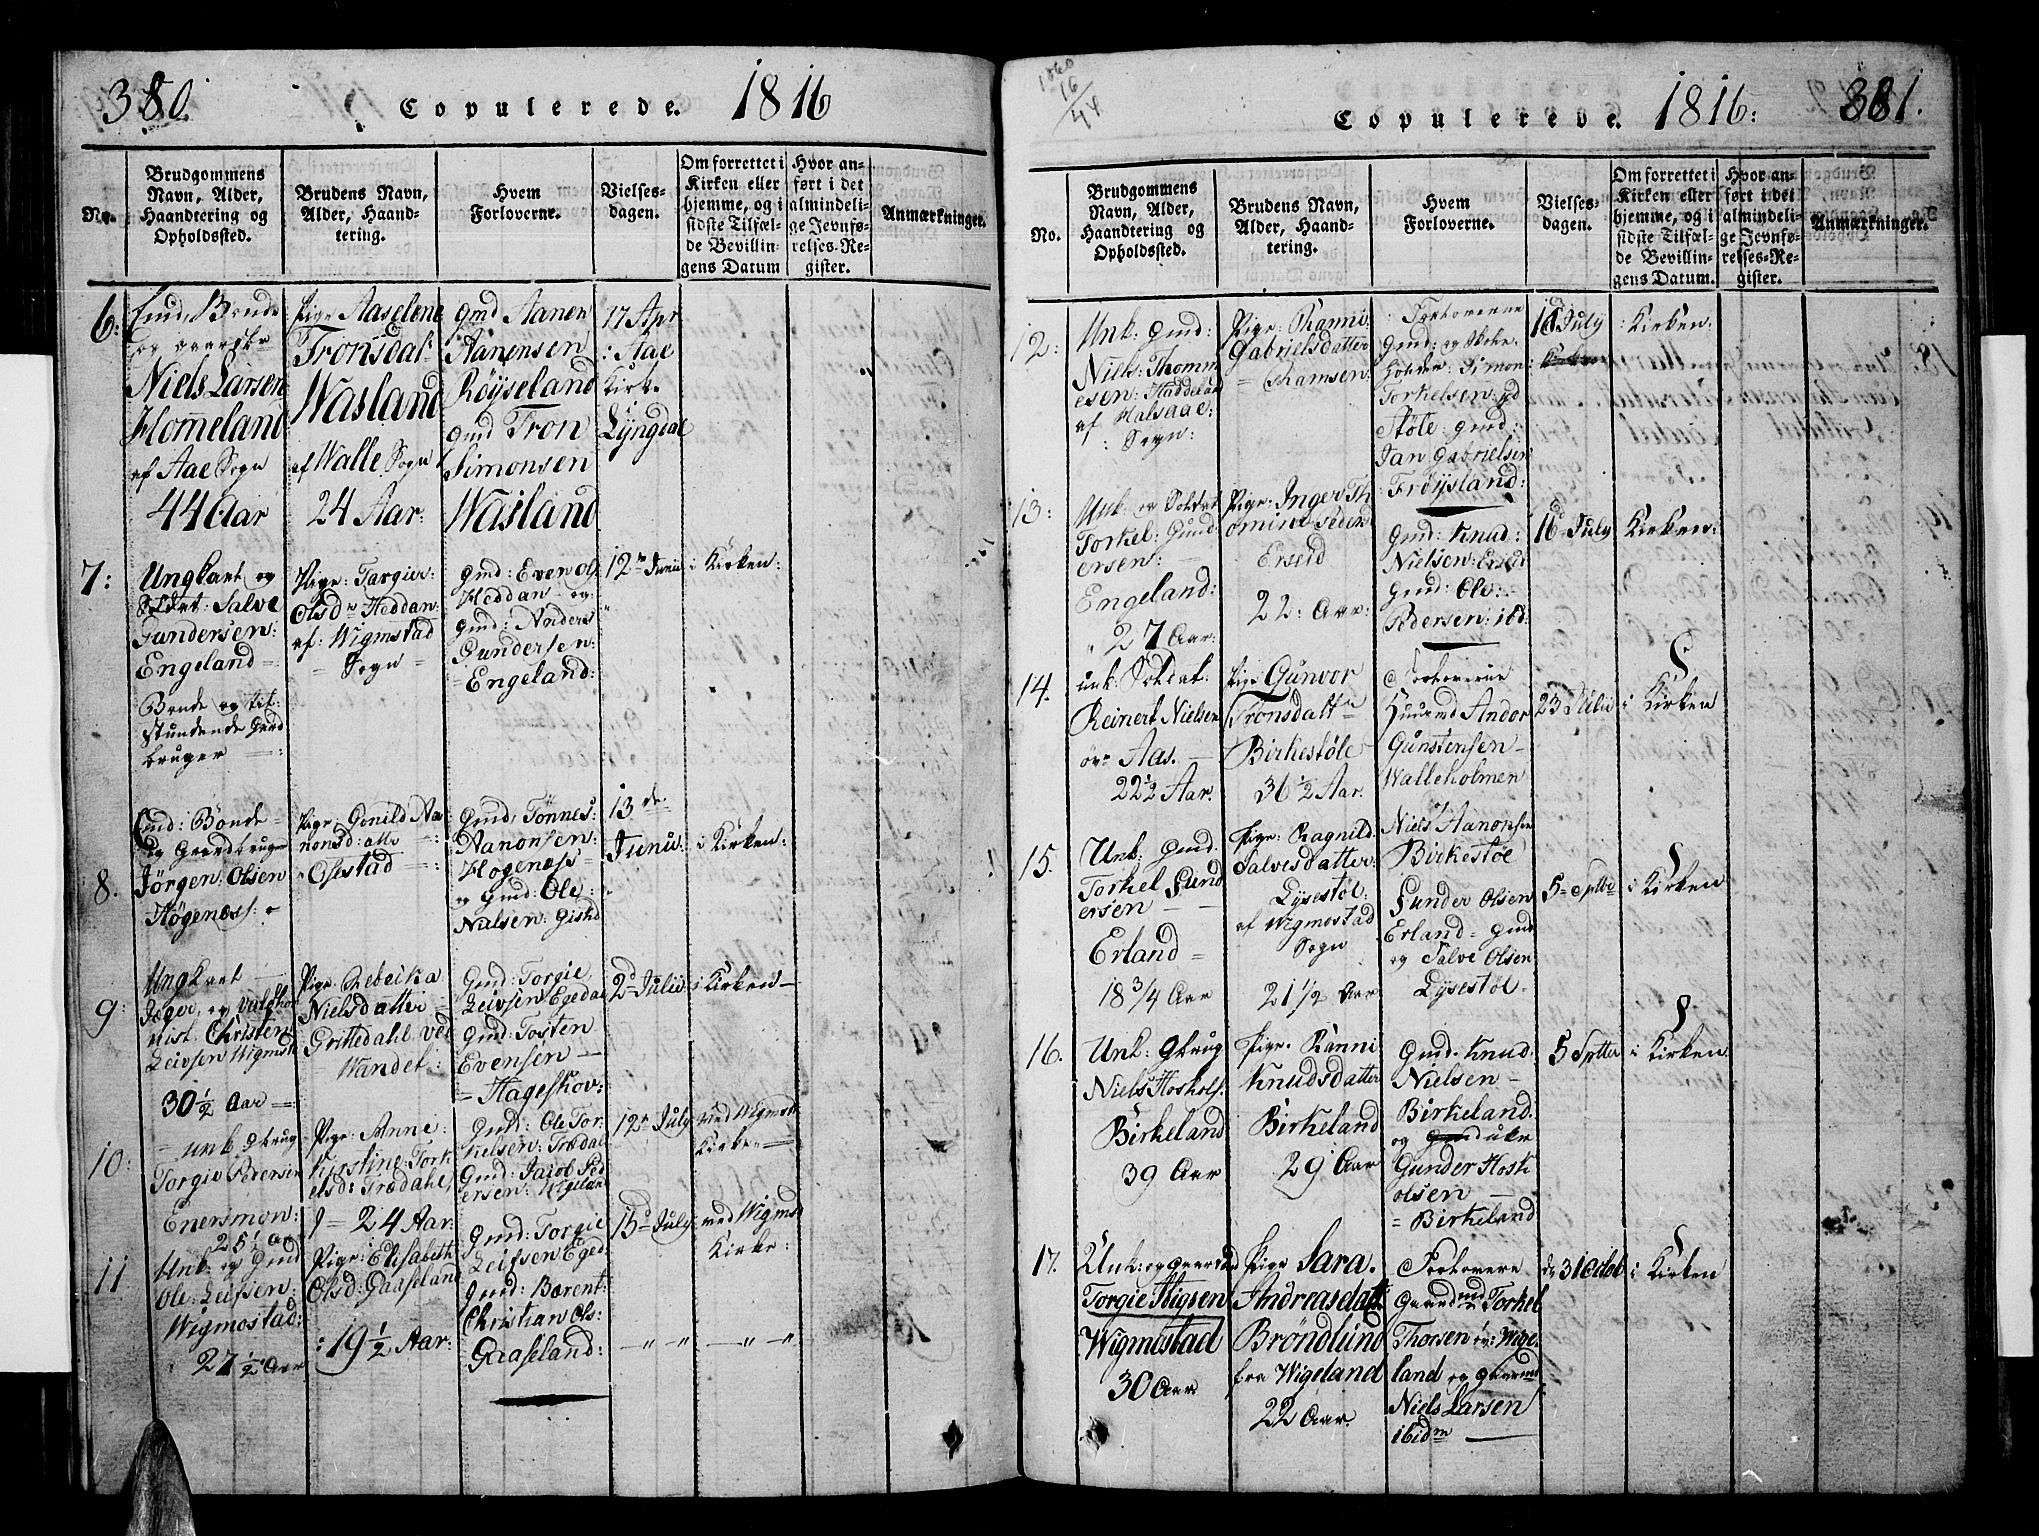 380.
Copulerede. 1816
No.
Brudgommens
Navn, Alder,
Haandtering og
Opholdssted.
Brudens Navn,
Alder, Haand-
tering.
Hvem
Forloverne.
Vielses-
dagen.
Om forrettet i
Kirken eller
hjemme, og i
sidste Tilfæl-
de Bevillin-
gens Datum
Hvor an-
ført i det
almindeli-
ge Jevnfø-
relses-Re-
gister.
Anmærkninger.
6:
Niels Larsen
Homeland
af Aae Sogn
44 Aar
Pige Aaselene
Tronsdat
Wasland
af Walle Sogn
24 Aar.
Gmd Aanen
Aanensen
Røyseland
Gmd Tron
Simonsen
Wasland
17 Apr
: Aae
Kirk.
i
Lyngdal
7:
Ungkarl og
Soldat: Salve
Gundersen:
Engeland
Bonde og til-
stundende Gaard
bruger
Pige: Targier
Olsdr Heddan:
af: Wigmstad
Sogn
Gmd: Even og
Heddan og
Gmd: Anders
Gundersen:
Engeland:
12te Junii
i Kirken:
8.
Emd: Bonde
og Gaardbruger
Jørgen: Olsen
Høgenæs:
Pige: Gonild Aa
nonsd:atter
Osestad
Gmd: Tønnes:
Aanonsen:
Hogenæs
og Gmd: Ole:
Nielsen: Giskd
13de
Junii.
i Kirken:
9:
Ungkarl
Jæger, og Valdhor
nist. Christen
Leivsen Wigmsta
30½ Aar
Pige: Rebeika
Nielsdatter
Grittedahl ved
Mandal:
Gmd: Torgie
Leivsen Egedal
Gmd: Tosten
Evensen
Hageskov:
2d Julii
i Kirken
10:
unk Gbrug
Torgie Pedersen
Enersmon:
25½ Aar
Pige: Anne:
Kirstine: Tork
elsd: Trædahl
24 Aar:
Gmd: Ole Tor
kielsen: Trædal
Gmd: Jacob Ped
ersen: Wigeland
12te July
ved Wigmst
Kirke
11
Unk: og Gmd
Ole: Leifsen:
Wigmostad:
27½ Aar
Pige: Elisabeth
Olsd: Gaaseland
: 19½ Aar:
Gmd: Torgie
Leifsen Eged
Gmd: Barent:
Christian Ols:
Gaaseland:
13d July
ved Wigmst
Kirke:
1860
16
44
Copulerede. 1816: 381.
No.
Brudgommens
Navn, Alder,
Haandtering og
Opholdssted.
Brudens Navn,
Alder, Haand-
tering.
Hvem
Forloverne.
Vielses-
dagen.
Om forrettet i
Kirken eller
hjemme, og i
sidste Tilfæl-
de Bevillin-
gens Datum.
Hvor an-
ført i det
almindeli-
ge Jevnfø-
relses-Re-
gister.
Anmærkninger.
12:
Unk: Gmd:
Niels: Thomm
esen: Haddeland
af Halsaae:
: Sogn:
Pige: Ranni
Gabrielsdatter
: Forloverne
Gmd: og Skole
holder Simon:
Torkelsen:
Støle: Gmd:
Jan Gabrielsen
Frøysland:
16 July
: Kirken.
13:
Unk: og Soldat
Torkel: Gund
ersen:
Engeland:
27 Aar:
Pige: Inger Th
omine Peders
Erseid
22: Aar:
Gmd: Knud:
Nielsen: Erseid
Gmd: Ole:
Pedersen: ibd:
16d July
Kirken:
14.
unk: Soldat.
Reinert Nielsen
övr Aas.
22½ Aar.
Pige Gunvor
Tronsdattr
Birkestøle
36½ Aar.
Forloverne
Huusmd Andor
Gunstensen
Walleholmen
Niels Aanonsen
Birkestøl
23 Julii
i Kirken
15.
Unk: Gmd.
Torkel Gund
ersen
Erland
18¾ Aar
Pige: Ragnild
Salvesdatter:
Lysestøl
af Wigmostad
Sogn
21½ Aar
Gunder Olsen
Erland Gmd
og Salve Olsen
Lysestøl
5 Sptbr
i Kirken
16.
Unk: Gbrug
Niels Hoskols.
Birkeland
39 Aar
Pige. Ranni
Knudsdatter
Birkeland
29 Aar
Gmd. Knud
Nielsen
Birkeland.
og Gmd
Gunder Hosk
olsen
Birkeland
5 Sptbr
i Kirken
17.
Unk: og
Torgie Stigsen
Wigmostad
30 Aar
Pige Sara.
Andreasdatt.
Brøndlund
fra Wigeland
22 Aar.
Forlovere
Gaardmd Torkel
Thorsen öv: Wige-
land og Gaardmd
Niels Larsen
ibidm
d. 31 Octob
i Kirken